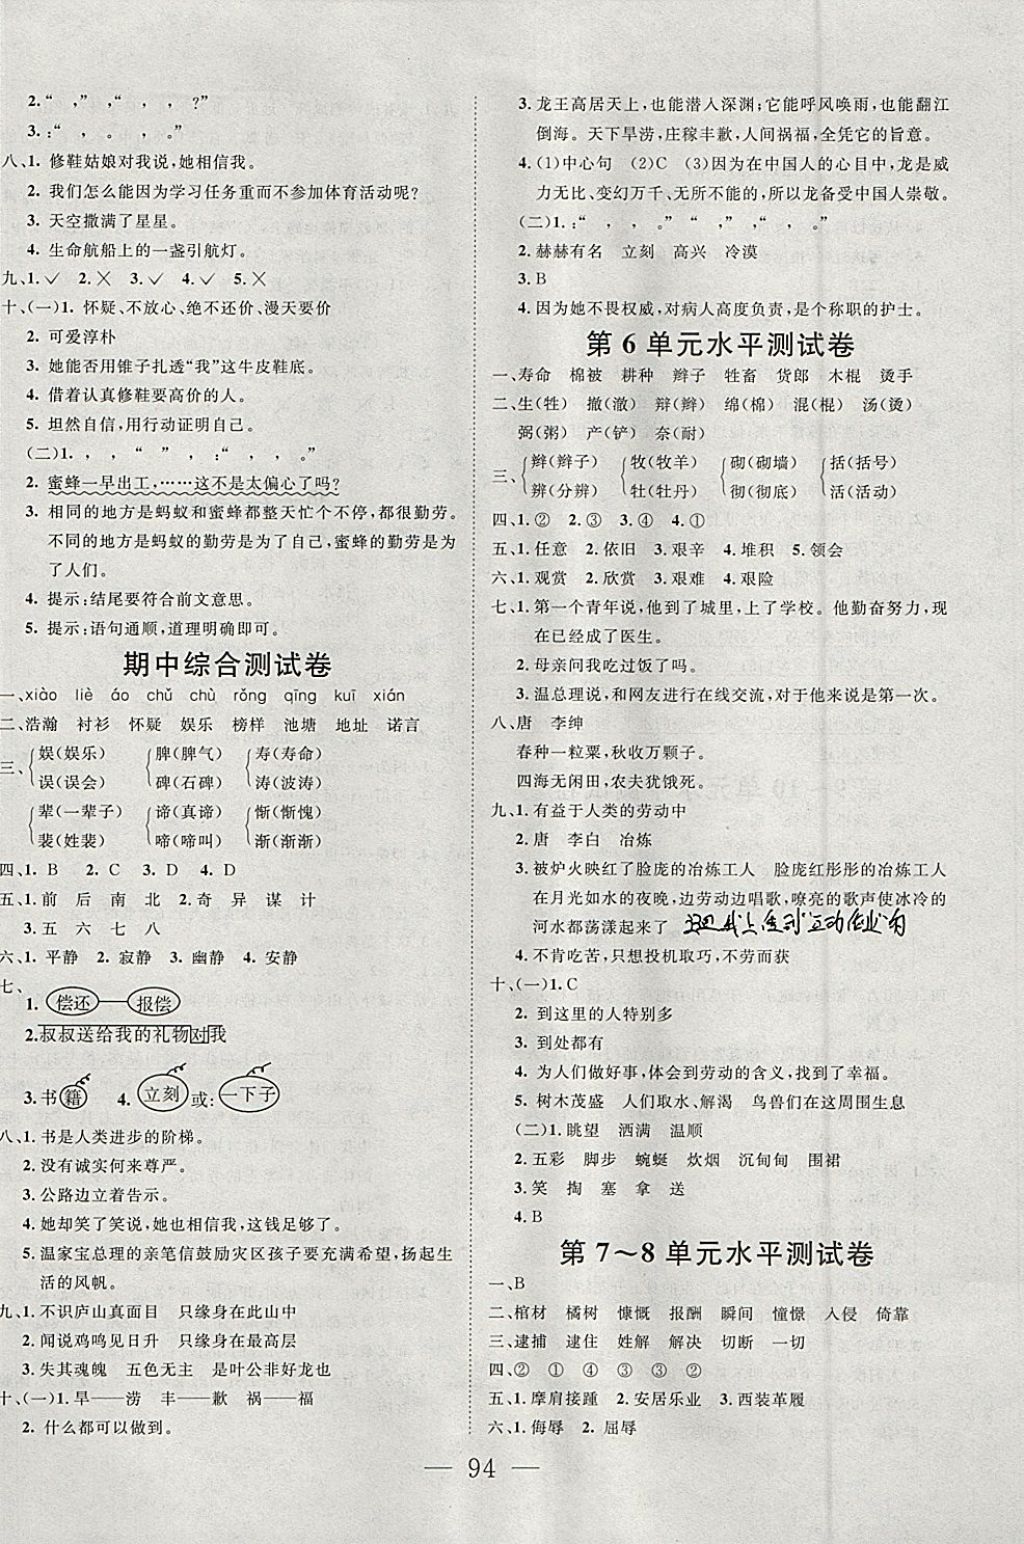 2. “　，”，“　，　，　？”
3. ：“　，　。　，　。”
八、1. 修鞋姑娘对我说，她相信我。
2. 我们怎么能因为学习任务重而不参加体育活动呢？
3. 天空撒满了星星。
4. 生命航船上的一盏引航灯。
九、1. ✓　2. ✕　3. ✓　4. ✓　5. ✕
十、(一)1. 怀疑、不放心、绝不还价、漫天要价
2. 可爱淳朴
3. 她能否用锥子扎透“我”这牛皮鞋底。
4. 借着认真修鞋要高价的人。
5. 坦然自信，用行动证明自己。
(二)1. ，　，　“　”　，　：“　，　，　。”
2. 蜜蜂一早出工，……这不是太偏心了吗？
3. 相同的地方是蚂蚁和蜜蜂都整天忙个不停，都很勤劳。
不同的地方是蚂蚁的勤劳是为了自己，蜜蜂的勤劳是为
了人们。
4. 提示：结尾要符合前文意思。
5. 提示：语句通顺，道理明确即可。
期中综合测试卷
一、xiào　liè　áo　chǔ　chù　rǒng　qīng　kuī　xián
二、浩瀚　衬衫　怀疑　娱乐　榜样　池塘　地址　诺言
三、{娱（娱乐）　{脾（脾气）　{寿（寿命）
误（误会）　碑（石碑）　涛（波涛）
{辈（一辈子）　{谛（真谛）　{惭（惭愧）
裴（姓裴）　啼（啼叫）　渐（渐渐）
四、1. B　2. C　3. D　4. D
五、1. 前　后　南　北　2. 奇　异　谋　计
3. 五　六　七　八
六、1. 平静　2. 寂静　3. 幽静　4. 安静
七、1. 偿还——报偿
2. 叔叔送给我的礼物对我
3. 书籍　4. 立刻或：一下子
八、1. 书是人类进步的阶梯。
2. 没有诚实何来尊严。
3. 公路边立着告示。
4. 她却笑了笑说，她也相信我，这钱足够了。
5. 温家宝总理的亲笔信鼓励灾区孩子要充满希望，扬起生
活的风帆。
九、1. 不识庐山真面目　只缘身在此山中
2. 闻说鸡鸣见日升　只缘身在最高层
3. 失其魂魄　五色无主　是叶公非好龙也
十、(一)1. 旱——涝　丰——歉　祸——福
2. 什么都可以做到。
3. 龙王高居天上，也能潜入深渊；它能呼风唤雨，也能翻江
倒海。天下旱涝，庄稼丰歉，人间祸福，全凭它的旨意。
4. (1)中心句　(2)C　(3)因为在中国人的心目中，龙是威
力无比、变幻万千、无所不能的，所以龙备受中国人崇敬。
(二)1. ：“　，　，　。”　“　，”　“　，　。”
2. 赫赫有名　立刻　高兴　冷漠
3. B
4. 因为她不畏权威，对病人高度负责，是个称职的护士。
第 6 单元水平测试卷
一、寿命　棉被　耕种　辫子　牲畜　货郎　木棍　烫手
二、生（牲）　撤（澈）　辩（辫）　绵（棉）　混（棍）　汤（烫）
弼（粥）　产（铲）　奈（耐）
三、{辫（辫子）　{牧（牧羊）　{砌（砌墙）　{括（括号）
辨（分辨）　牡（牡丹）　彻（彻底）　活（活动）
四、1. ②　2. ③　3. ④　4. ①
五、1. 任意　2. 依旧　3. 艰辛　4. 堆积　5. 领会
六、1. 观赏　2. 欣赏　3. 艰难　4. 艰险
七、1. 第一个青年说，他到了城里，上了学校。他勤奋努力，现
在已经成了医生。
2. 母亲问我吃过饭了吗。
3. 温总理说，和网友进行在线交流，对于他来说是第一次。
八、唐　李绅
春种一粒粟，秋收万颗子。
四海无闲田，农夫犹饿死。
九、1. 有益于人类的劳动中
2. 唐　李白　冶炼
3. 被炉火映红了脸庞的冶炼工人　脸庞红彤彤的冶炼工人
在月光如水的夜晚，边劳动边唱歌，嘹亮的歌声使冰冷的
河水都荡漾起来了
4. 不肯吃苦，只想投机取巧，不劳而获
十、(一)1. C
2. 到这里的人特别多
3. 到处都有
4. 为人们做好事，体会到劳动的含义，找到了幸福。
5. 树木茂盛　人们取水、解渴　鸟兽们在这周围生息
(二)1. 眺望　洒满　温顺
2. 五彩　脚步　蜿蜒　炊烟　沉甸甸　围裙
3. 笑　掏　塞　拿　送
4. B
第 7～8 单元水平测试卷
一、B
二、棺材　橘树　慷慨　报酬　瞬间　憧憬　入侵　倚靠
三、逮捕　逮住　姓解　解决　切断　一切
四、②　①　④　③　③　②
五、1. 摩肩接踵　2. 安居乐业　3. 西装革履
六、1. 侮辱　2. 屈辱
— 94 —